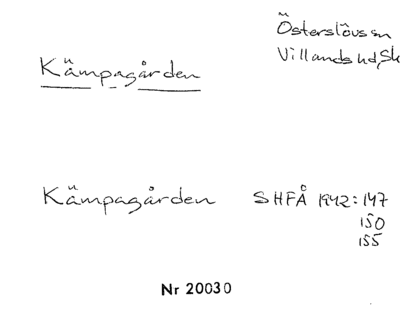 Österslövs sn
Villands hd, Sk
Kämpagården
Kämpagården SHFÅ 1942:147
150
155
Nr 20030